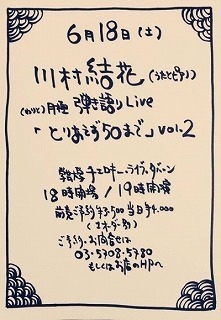 6月18日(土)
川村結花(うたとピアノ)
(わりと)月極 弾き語りLive
「とりあえず50まで」vol.2
学芸大 チェロキー・ライヴ・タバーン
18時開場/19時開演
前売ご予約¥3,500 当日¥4,000
(オーダー別)
ご予約・お問合せは
03・5708・5780
もしくはお店のHPへ